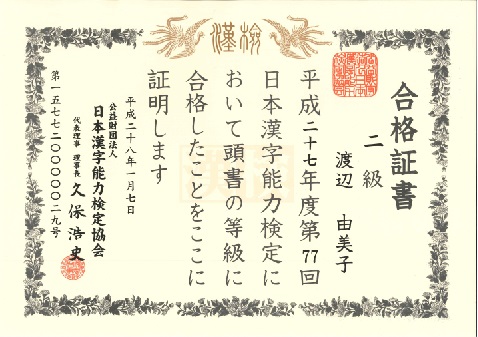 漢検
合格証書
二級
渡辺 由美子
平成二十七年度第77回
日本漢字能力検定に
おいて頭書の等級に
合格したことをここに
証明します
平成二十八年一月七日
公益財団法人
日本漢字能力検定協会
代表理事 理事長 久保浩史
第一五七七二〇〇〇〇〇二九号